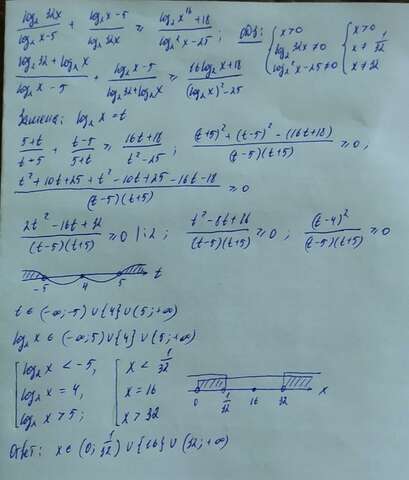 log₂32x / log₂x-5 + log₂x-5 / log₂32x ≥ log₂x¹⁶+18 / log₂²x-25 ; ОДЗ: { x>0 log₂32x≠0 log₂²x-25≠0 { x>0 x≠1/32 x≠32
log₂32+log₂x / log₂x-5 + log₂x-5 / log₂32+log₂x ≥ 16log₂x+18 / (log₂x)²-25
Замена: log₂x=t
5+t / t-5 + t-5 / 5+t ≥ 16t+18 / t²-25 ; (t+5)²+(t-5)²-(16t+18) / (t-5)(t+5) ≥0 ;
t²+10t+25+t²-10t+25-16t-18 / (t-5)(t+5) ≥0
2t²-16t+32 / (t-5)(t+5) ≥0 |:2 ; t²-8t+16 / (t-5)(t+5) ≥0 ; (t-4)² / (t-5)(t+5) ≥0
-5 4 5 t
t∈(-∞;-5)∪{4}∪(5;+∞)
log₂x∈(-∞;5)∪{4}∪(5;+∞)
[ log₂x<-5, [ x<1/32
log₂x=4, x=16
log₂x>5; x>32
0 1/32 16 32 x
Ответ: x∈(0;1/32)∪{16}∪(32;+∞)